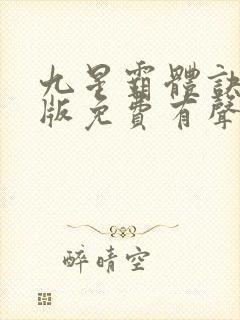 九星霸體訣
版免費有聲
醉晴空